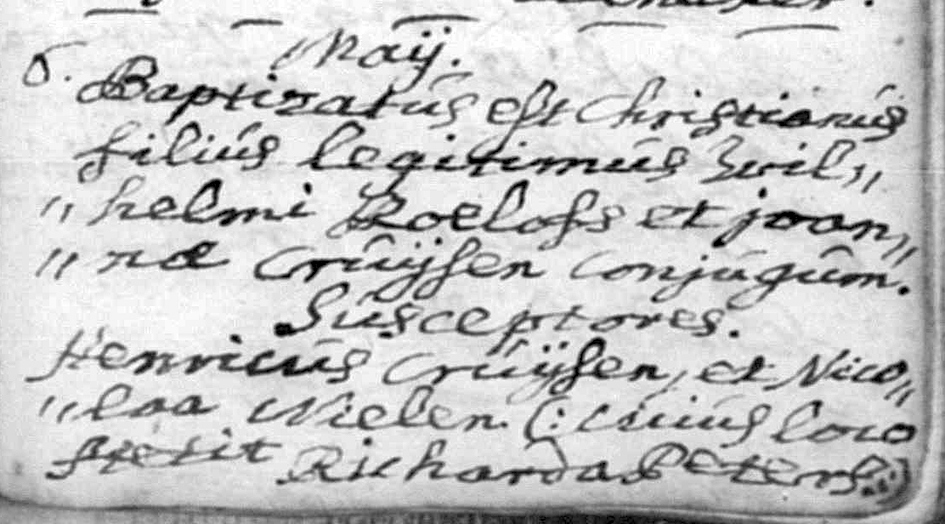 Maÿ.
6. Baptizatus est Christianus
filius legitimus Wil„
„helmi Roelofs et joan„
„næ Cruÿsen conjugum.
Susceptores.
Henricus Cruÿsen, et Nico„
„laa Nielen (: cuius loco
stetit Richarda Peters :)